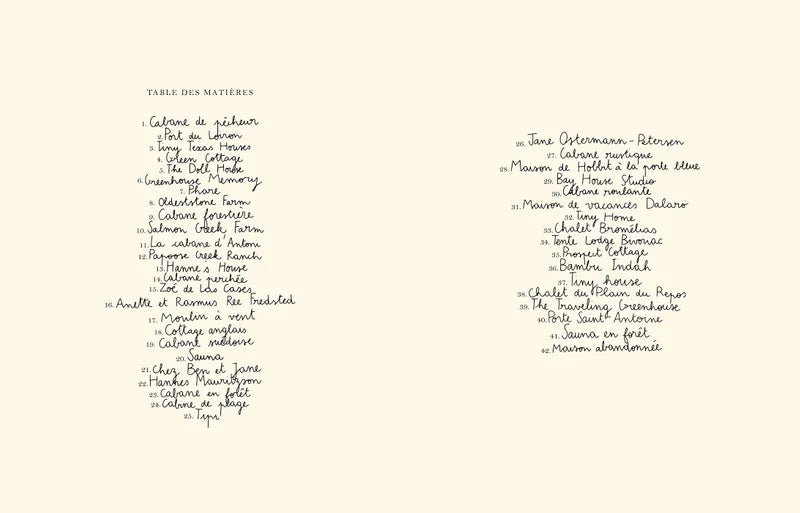 TABLE DES MATIÈRES
1. Cabane de pêcheur
2. Port du Loiron
3. Tiny Texas Houses
4. Green Cottage
5. The Doll House
6. Greenhouse Memory
7. Phare
8. Oldeststone Farm
9. Cabane forestière
10. Salmon Creek Farm
11. La cabane d'Antoni
12. Papoose Creek Ranch
13. Hanne's House
14. Cabane perchée
15. Zoé de Las Cases
16. Anette et Rasmus Ree Fredsted
17. Moulin à vent
18. Cottage anglais
19. Cabane suédoise
20. Sauna
21. Chez Ben et Jane
22. Hannes Mauritzson
23. Cabane en forêt
24. Cabine de plage
25. Tipi
26. Jane Ostermann-Petersen
27. Cabane rustique
28. Maison de Hobbit à la porte bleue
29. Bay House Studio
30. Cabane roulante
31. Maison de vacances Dalarö
32. Tiny Home
33. Chalet Bromélias
34. Tente Lodge Bivouac
35. Prospect Cottage
36. Bambu Indah
37. Tiny house
38. Chalet du Plain du Repos
39. The Traveling Greenhouse
40. Porte Saint-Antoine
41. Sauna en forêt
42. Maison abandonnée